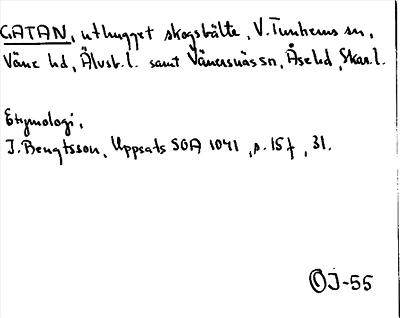 GATAN, uthugget skogsbälte, V. Tunhems sn,
Väne hd, Älvsb.l. samt Vänersnäs sn, Åse hd, Skar.l.
Etymologi,
J. Bengtsson, Uppsats SOA 1041, s. 15f, 31.
OJ-55